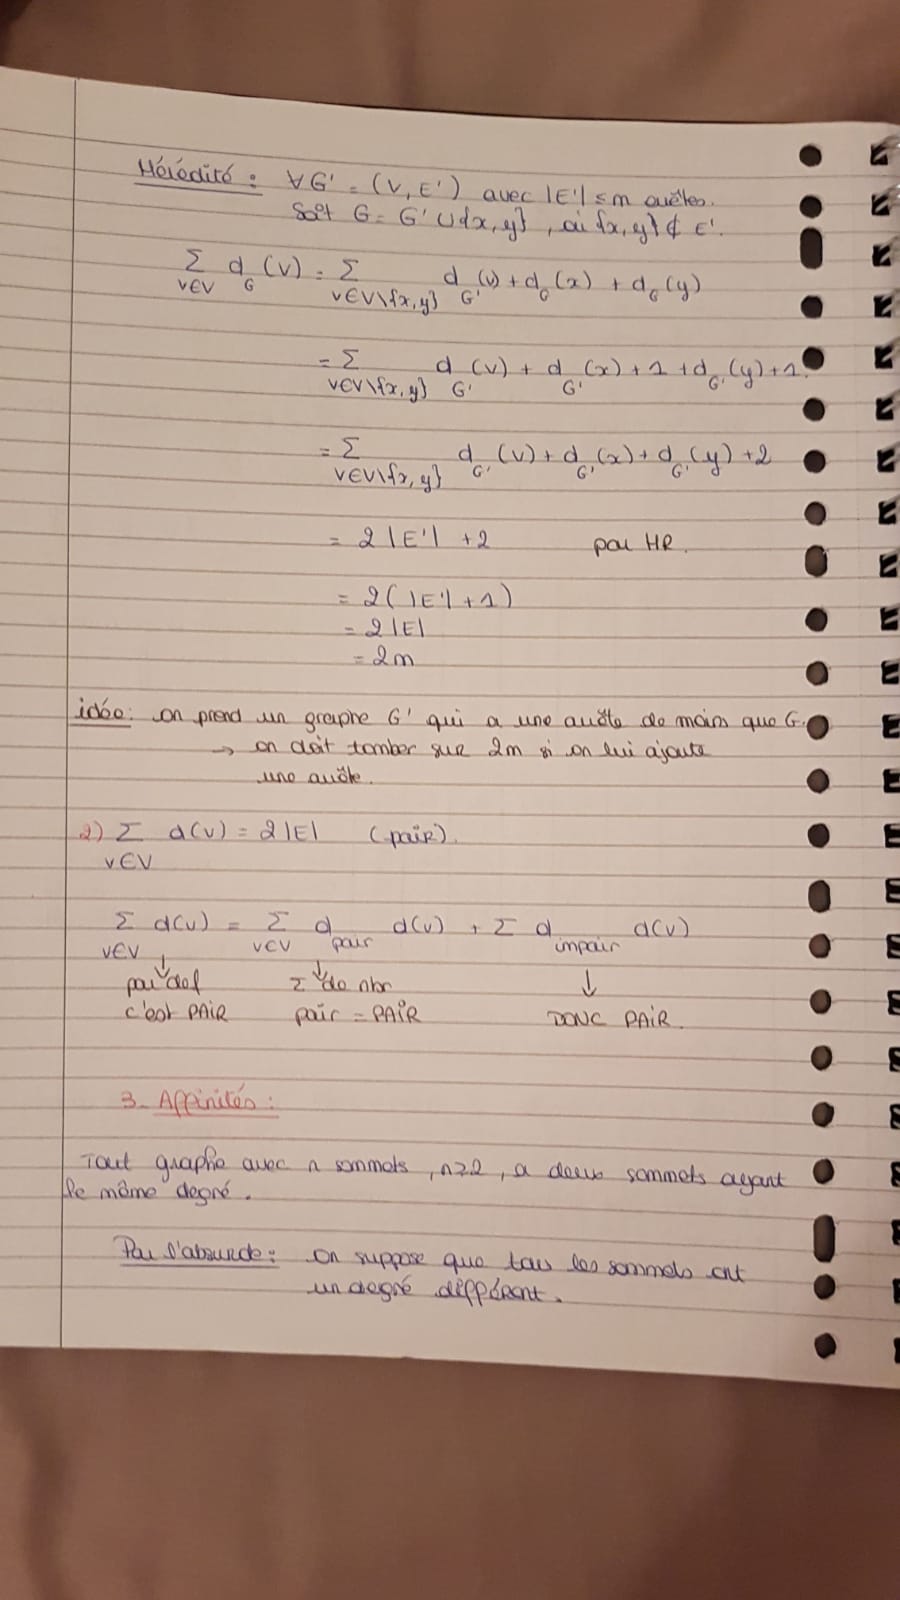 Hérédité : ∀G' = (V, E') avec |E'| ≤ m arêtes.
Soit G = G' ∪ {x, y}, où {x, y} ∉ E'.
Σ d (v) = Σ d (v) + d (x) + d (y)
v∈V G v∈V\{x, y} G' G G
= Σ d (v) + d (x) + 1 + d (y) + 1.
v∈V\{x, y} G' G' G'
= Σ d (v) + d (x) + d (y) + 2
v∈V\{x, y} G' G' G'
= 2 |E'| + 2 par HR.
= 2 ( |E'| + 1 )
= 2 |E|
= 2m
idée : on prend un graphe G' qui a une arête de moins que G.
→ on doit tomber sur 2m si on lui ajoute
une arête.
2) Σ d(v) = 2|E| (pair).
v∈V
Σ d(v) = Σ d d(v) + Σ d d(v)
v∈V v∈V pair impair
↓ ↓ ↓
par def Σ de nbr
c'est PAIR pair = PAIR DONC PAIR.
3- Affinités :
Tout graphe avec n sommets, n≥2, a deux sommets ayant
le même degré.
Par l'absurde : on suppose que tous les sommets ont
un degré différent.